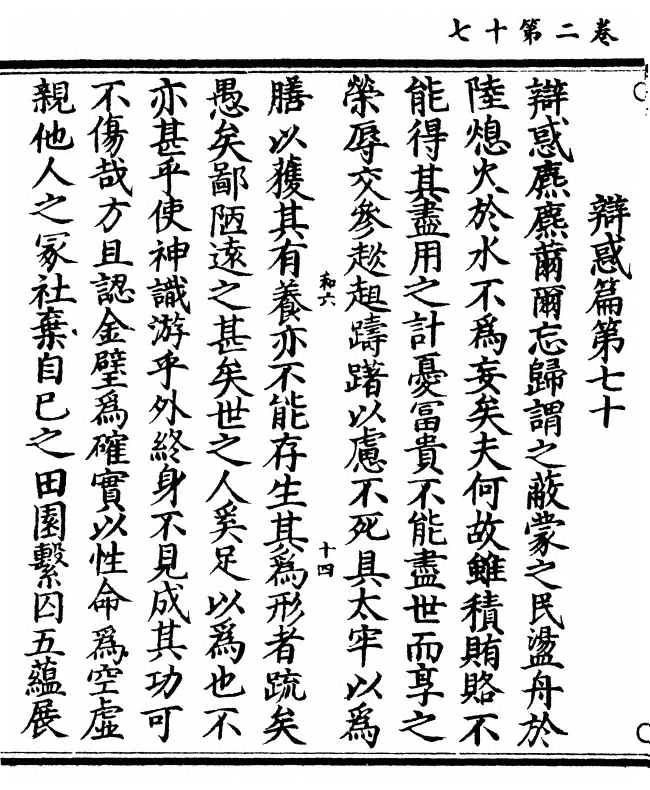 卷二第十七
辯惑篇第七十
辯惑麃麃薾爾忘歸謂之蔽蒙之民盪舟於
陸熄火於水不爲妄矣夫何故雖積賄賂不
能得其盡用之計憂冨貴不能盡世而享之
榮辱交參趑趄躊躇以慮不死具太牢以爲
和六
十四
膳以獲其有養亦不能存生其爲形者疏矣
愚矣鄙陋遠之甚矣世之人奚足以爲也不
亦甚乎使神識游乎外終身不見成其功可
不傷哉方且認金璧爲確實以性命爲空虛
親他人之冢社棄自己之田園繫囚五蘊展